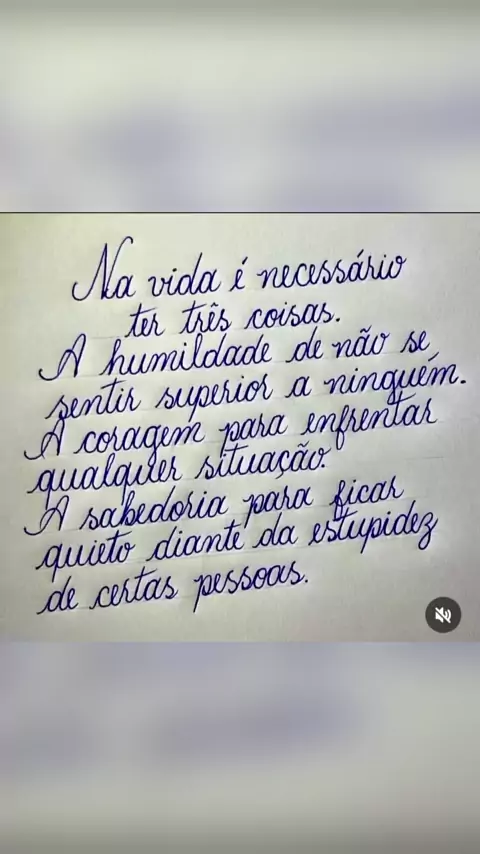 Na vida é necessário
ter três coisas.
A humildade de não se
sentir superior a ninguém.
A coragem para enfrentar
qualquer situação.
A sabedoria para ficar
quieto diante da estupidez
de certas pessoas.